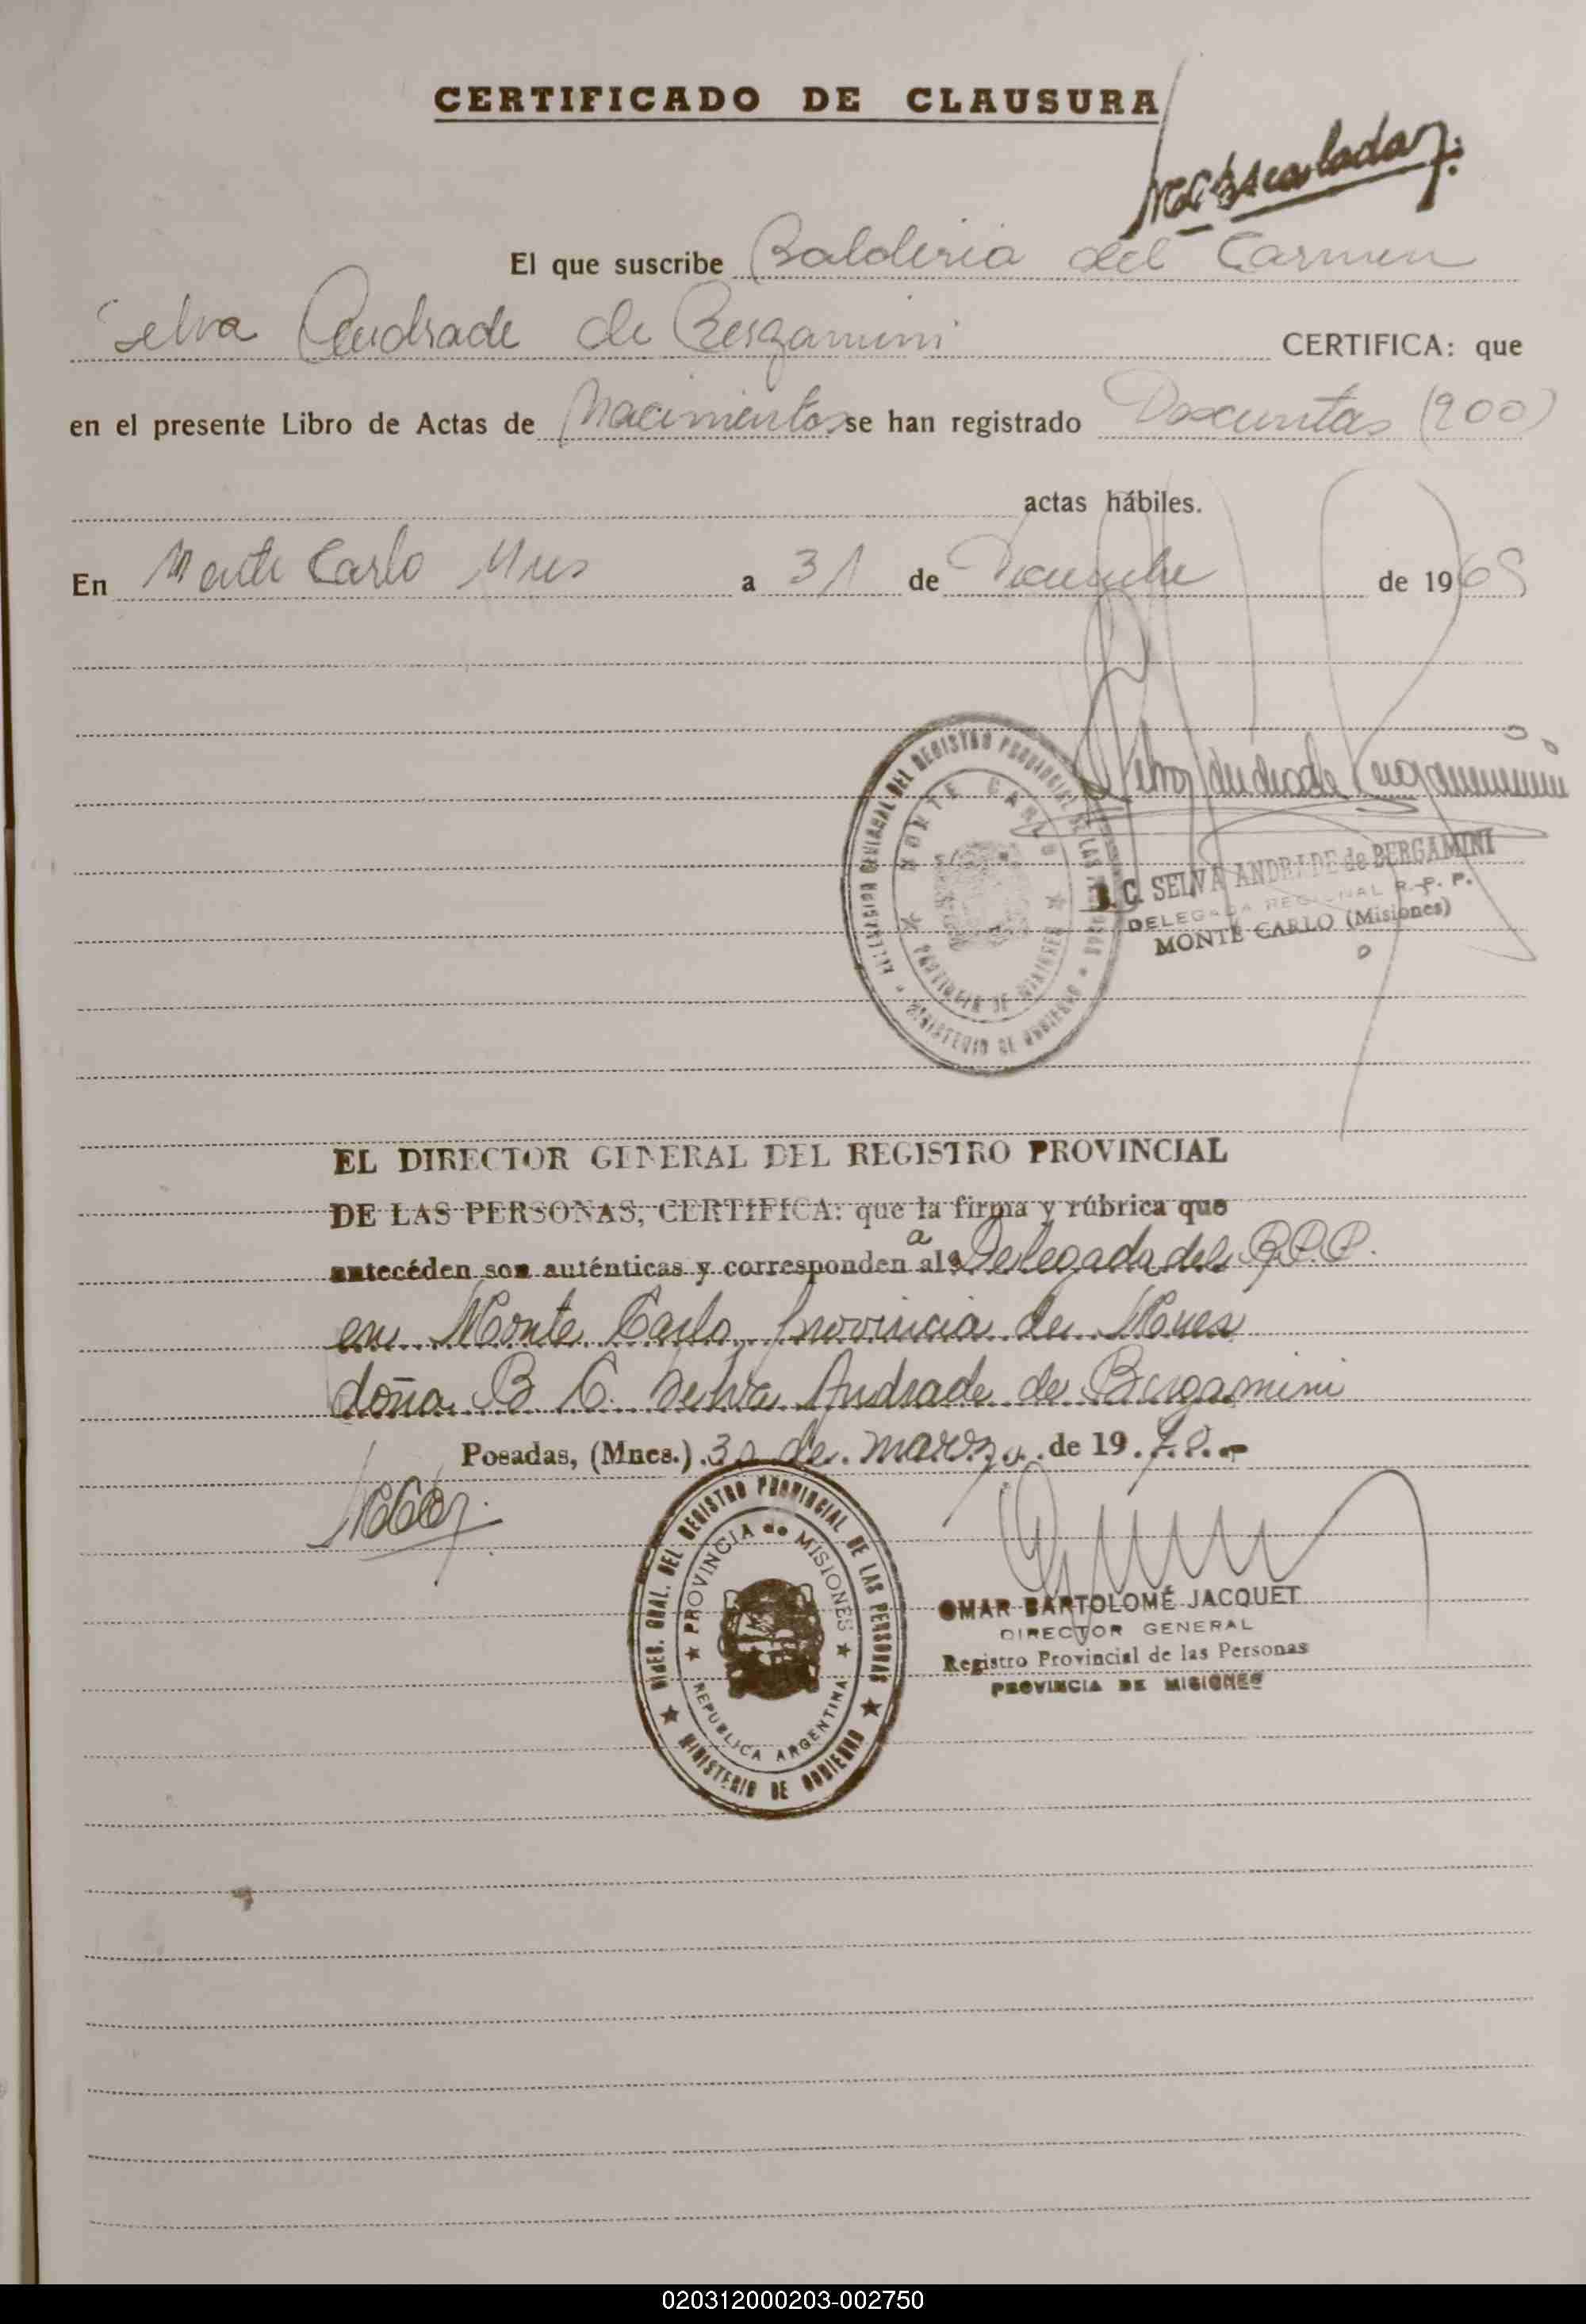 CERTIFICADO DE CLAUSURA
El que suscribe Balderia del Carmen
Selva Andrade de Bergamini CERTIFICA: que
en el presente Libro de Actas de Nacimientos se han registrado Doscientas (200)
actas hábiles.
En Monte Carlo Mnes a 31 de Diciembre de 1969
Selva Andrade Bergamini
DIRECCION GENERAL DEL REGISTRO PROVINCIAL DE LAS PERSONAS
MONTE CARLO
PROVINCIA DE MISIONES
MINISTERIO DE GOBIERNO
B. C. SELVA ANDRADE de BERGAMINI
DELEGADA REGIONAL R. P. P.
MONTE CARLO (Misiones)
EL DIRECTOR GENERAL DEL REGISTRO PROVINCIAL
DE LAS PERSONAS, CERTIFICA: que la firma y rúbrica que
antecéden son auténticas y corresponden a la Delegada del R.P.P.
en Monte Carlo, provincia de Mnes
doña B C. Selva Andrade de Bergamini
Posadas, (Mnes.) 30 de marzo de 19
DIREC. GRAL. DEL REGISTRO PROVINCIAL DE LAS PERSONAS
PROVINCIA de MISIONES
REPUBLICA ARGENTINA
MINISTERIO DE GOBIERNO
OMAR BARTOLOMÉ JACQUET
DIRECTOR GENERAL
Registro Provincial de las Personas
PROVINCIA DE MISIONES
020312000203-002750